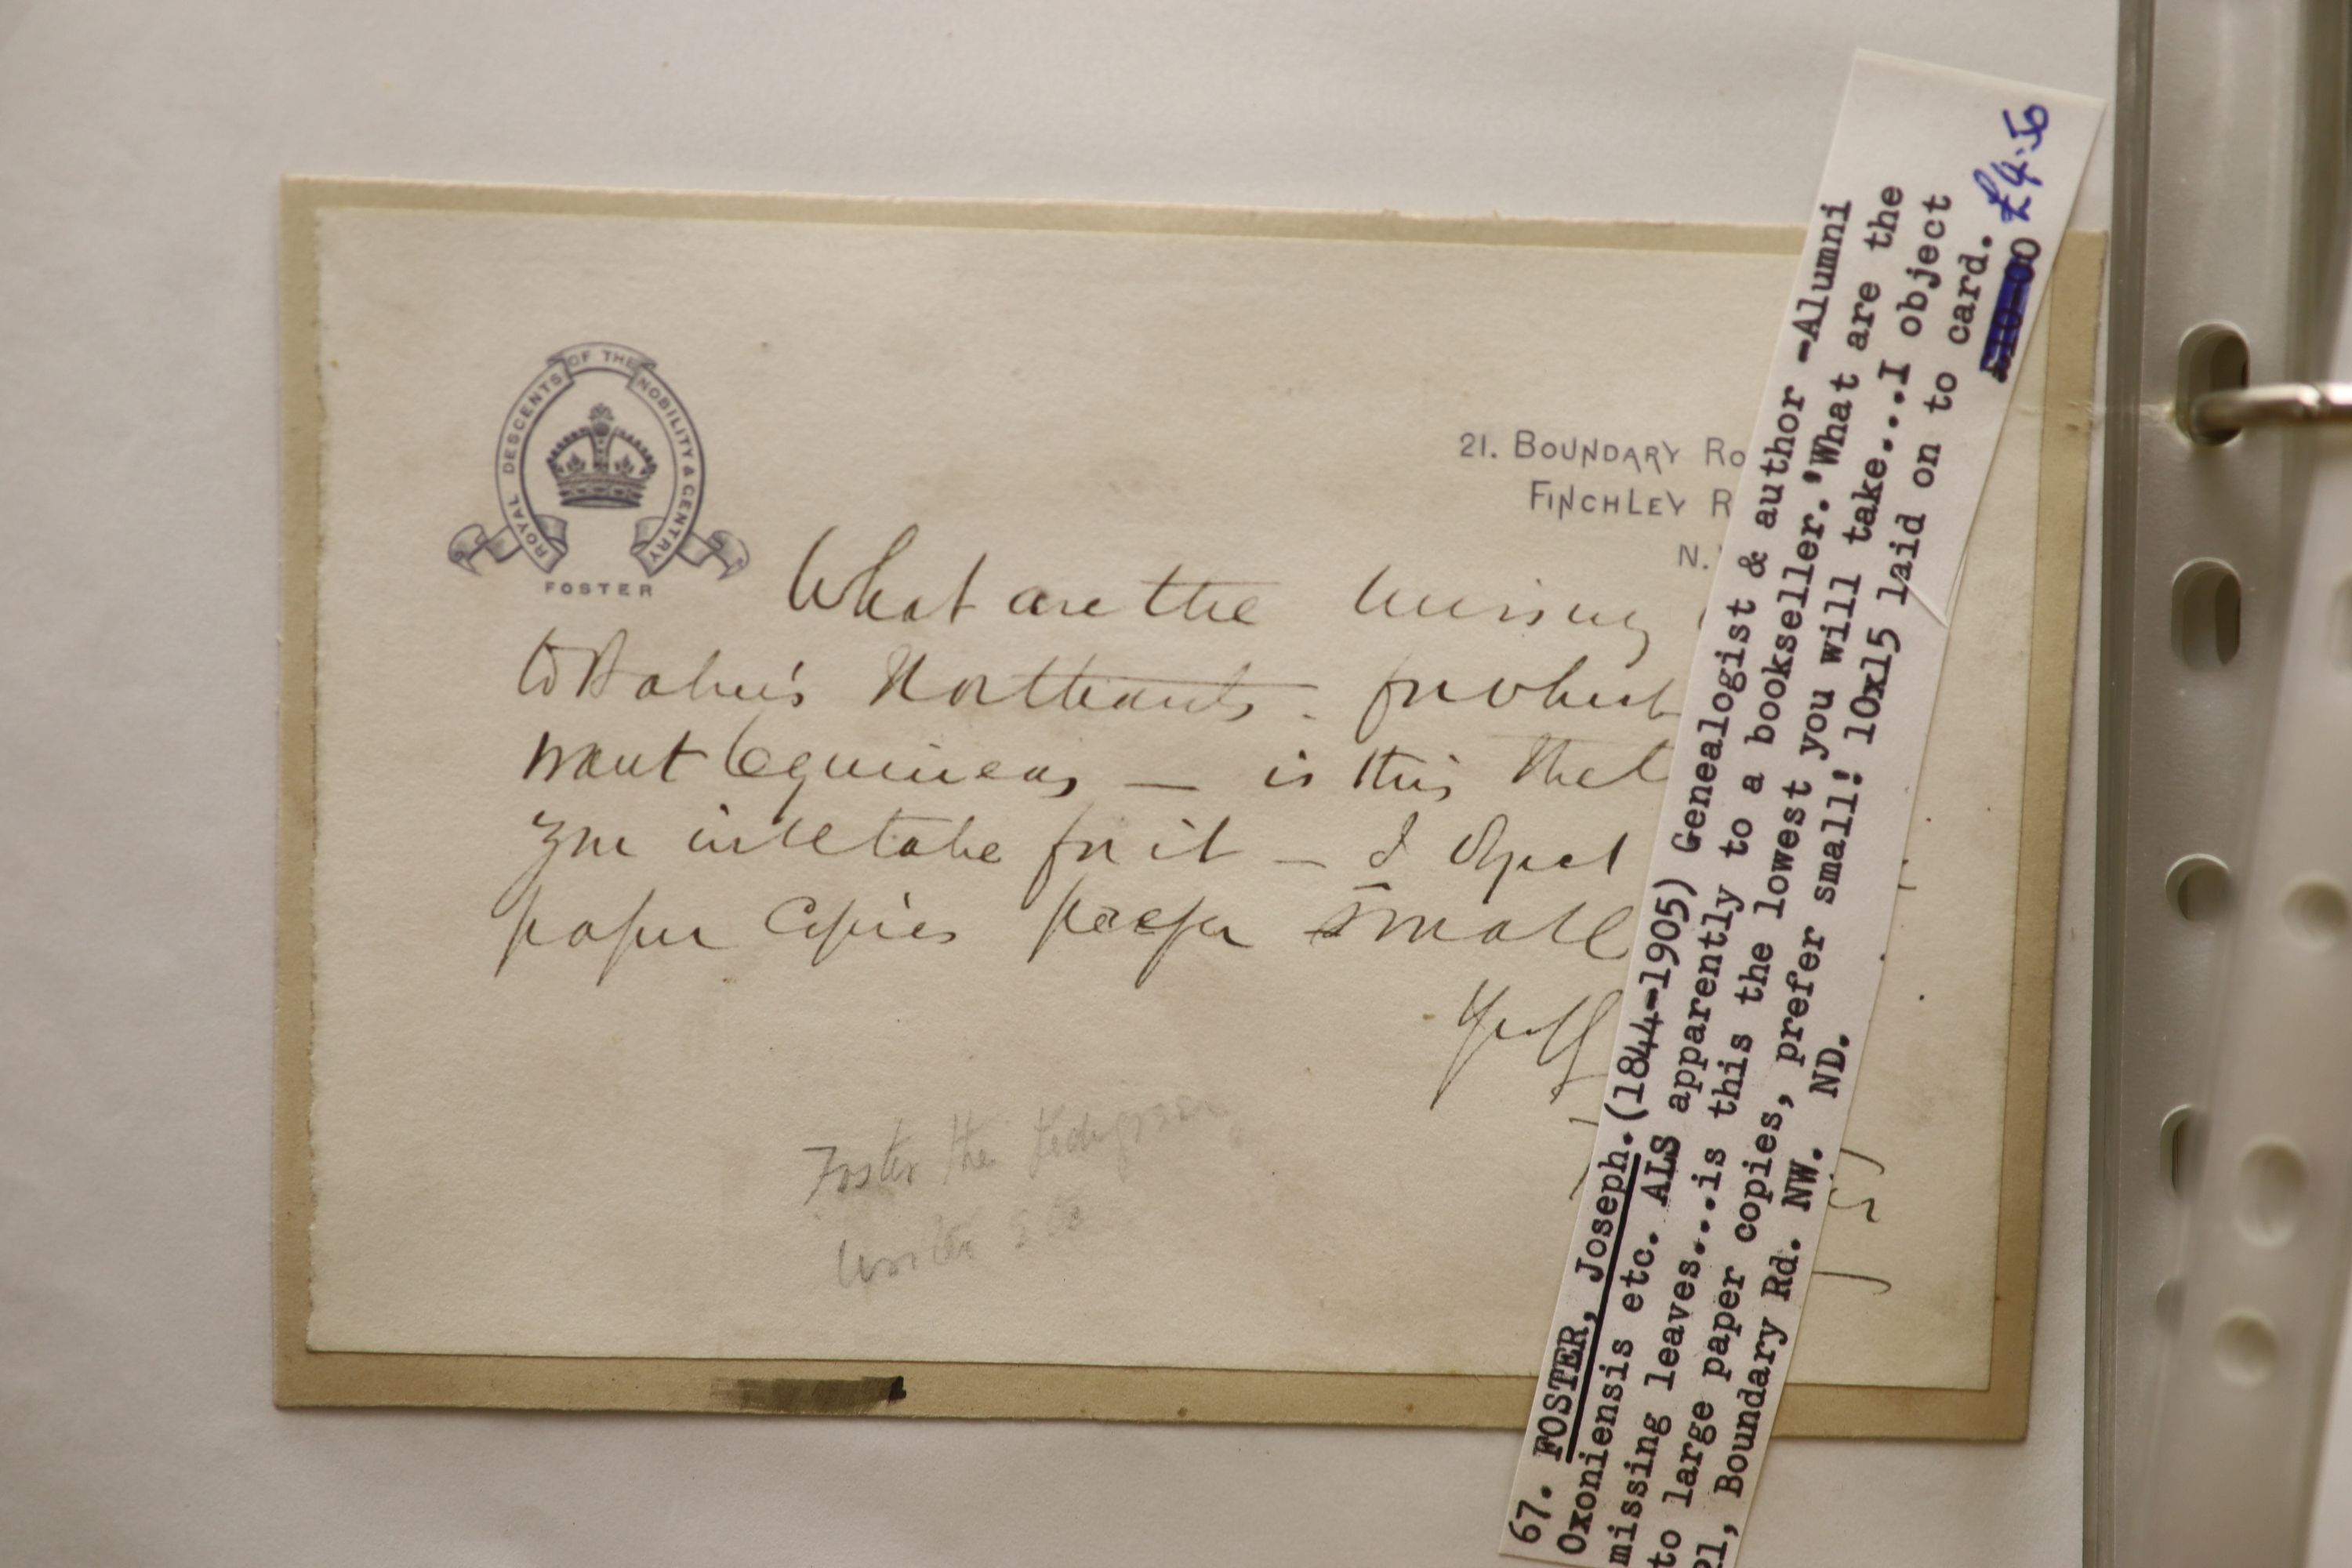 ROYAL DESCENTS OF THE NOBILITY & GENTRY
FOSTER
21. BOUNDARY RO
FINCHLEY R
N.
What are the missing
to Baker's Northants. for which
want 6 guineas — is this the l
you will take for it — I object
paper copies prefer small
Foster the Pedigree
writer etc
67. FOSTER, Joseph.(1844-1905) Genealogist & author -Alumni
Oxoniensis etc. ALS apparently to a bookseller.'What are the
missing leaves...is this the lowest you will take...I object
to large paper copies, prefer small! 10x15 laid on to card.
21, Boundary Rd. NW. ND.
£4.50